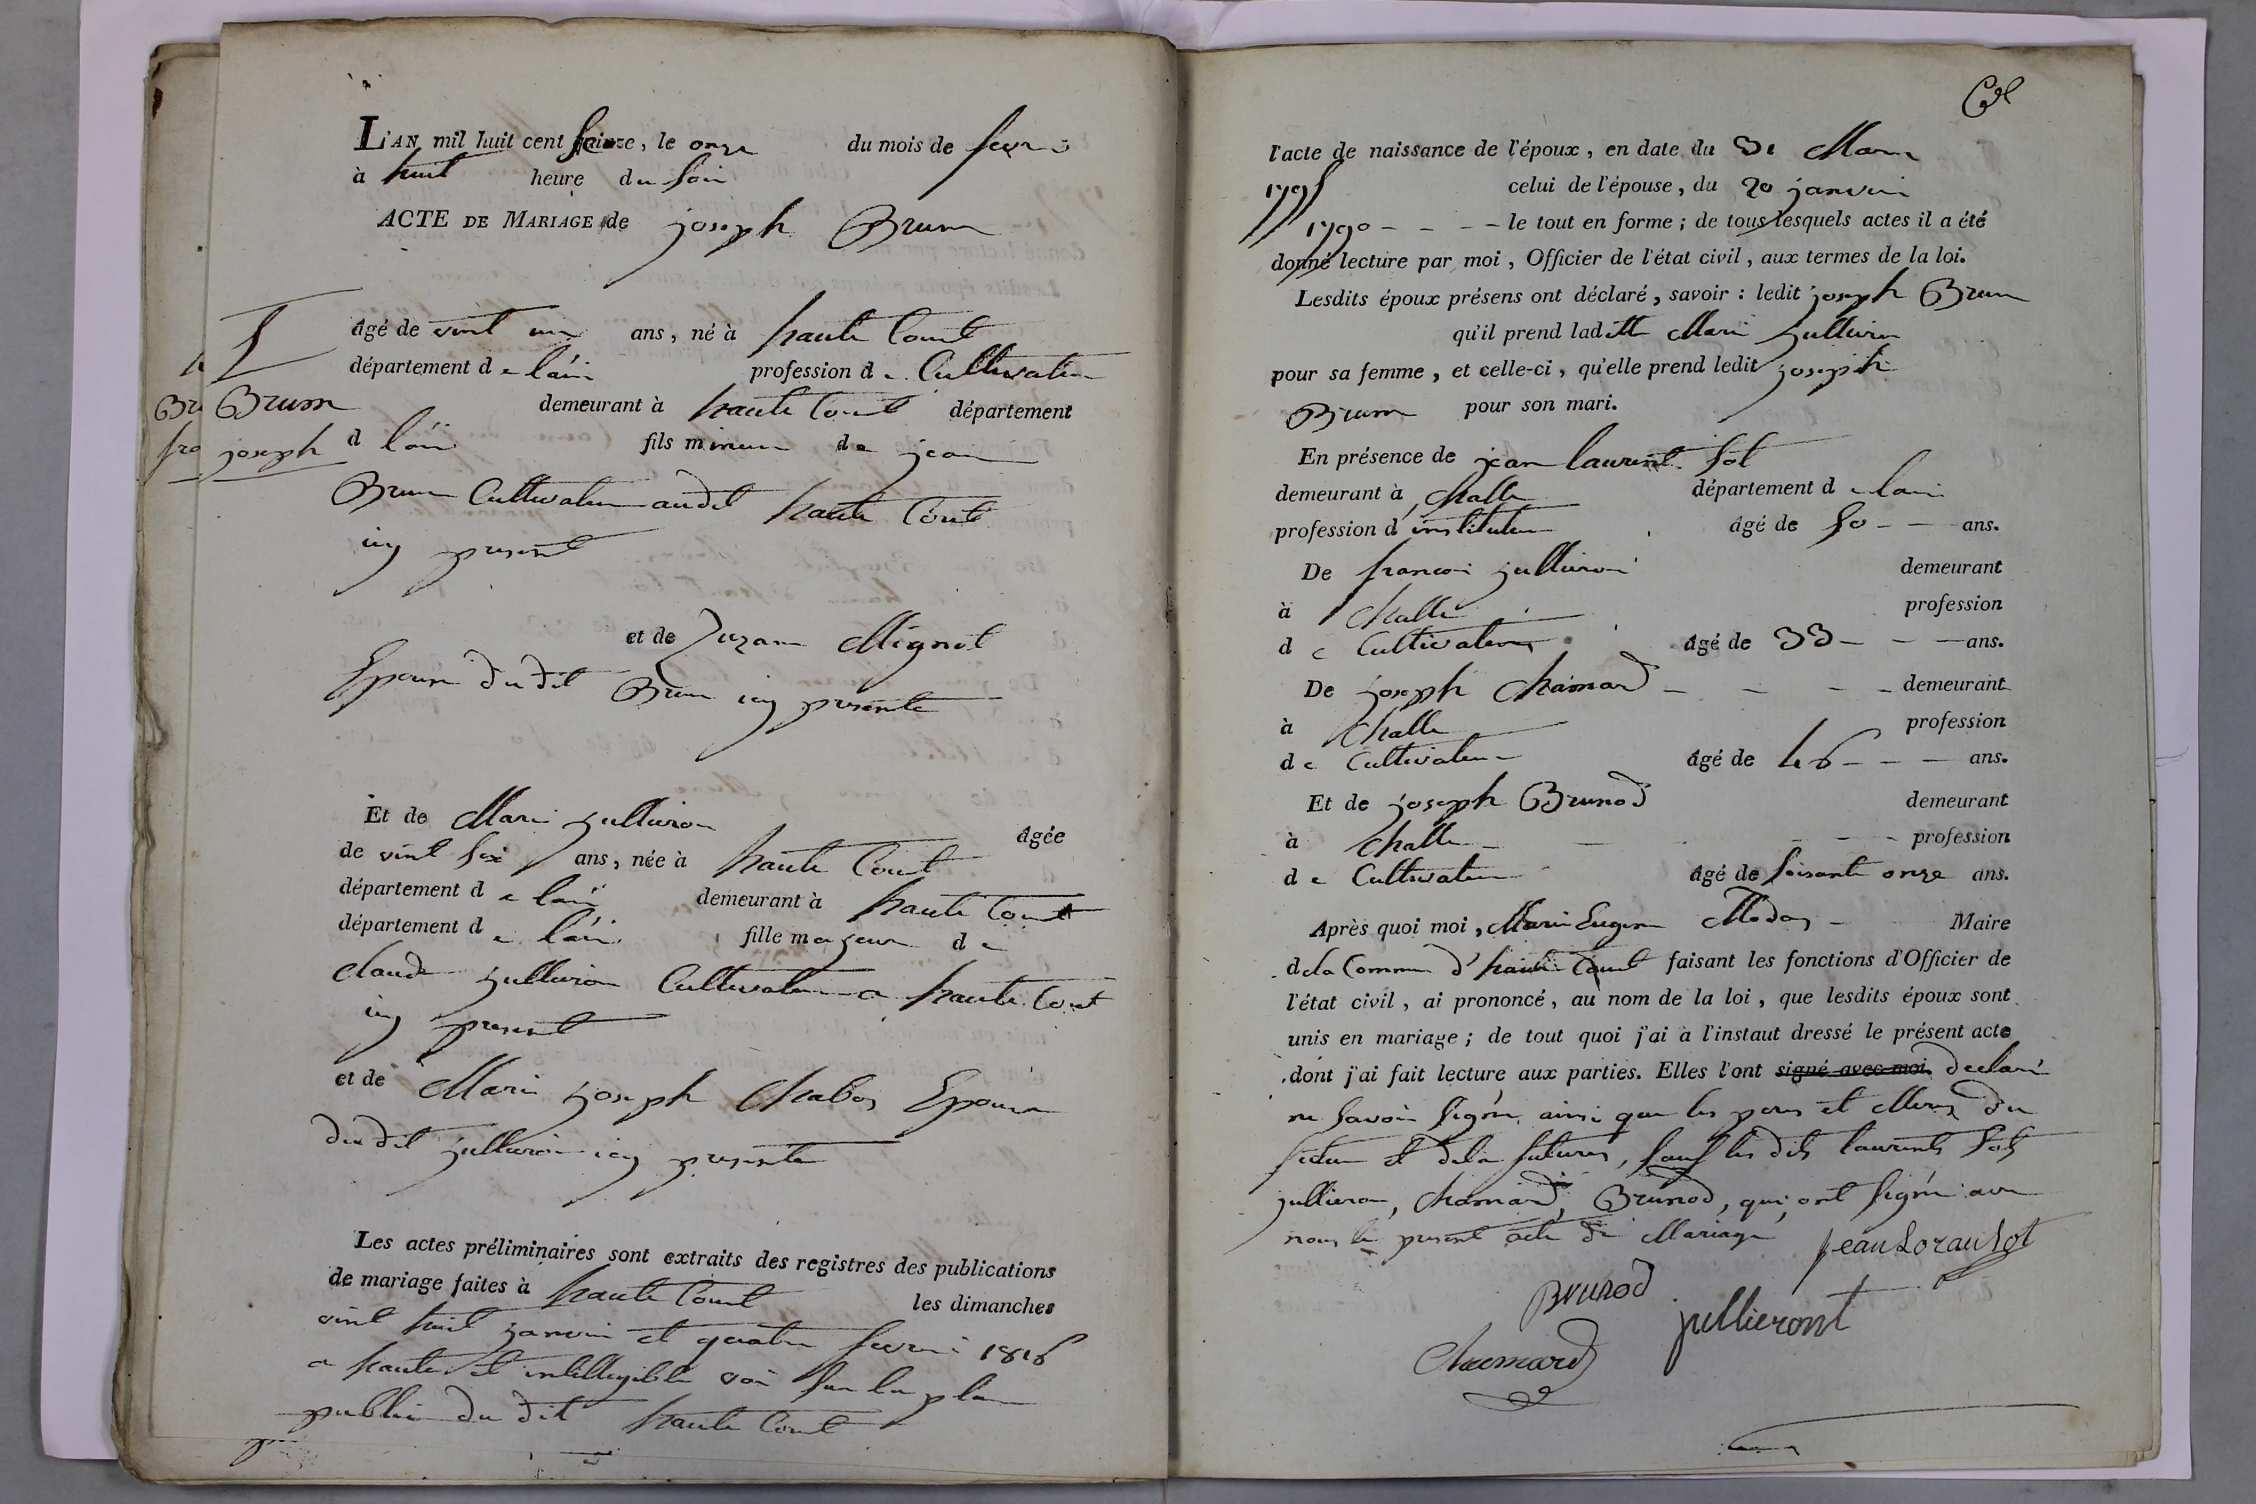 L'AN mil huit cent seize, le onze du mois de fevrié
à huit heure du soir
ACTE DE MARIAGE de joseph Brun
âgé de vint un ans, né à haute Court
département de lain profession de Cultivateur
Brun
joseph
demeurant à haute Court département
d lain fils mineur de jean
Brun Cultivateur audit haute Court
icy present
et de Suzane Mignot
Epouse du dit Brun icy presente
Et de Marie jullieron âgée
de vint six ans, née à haute Court
département de lain demeurant à haute Court
département de lain fille majeure de
claude jullieron Cultivateur a haute Court
icy present
et de Marie joseph Chabos Epouse
du dit jullieron icy presente
Les actes préliminaires sont extraits des registres des publications
de mariage faites à haute Court les dimanches
vint huit janvié et quatre fevrié 1816
a haute et intelligible voi sur la place
public du dit haute Court
l'acte de naissance de l'époux, en date du 31 Mars
1795 celui de l'épouse, du 20 janvié
1790 - - - - le tout en forme; de tous lesquels actes il a été
donné lecture par moi, Officier de l'état civil, aux termes de la loi.
Lesdits époux présens ont déclaré, savoir: ledit joseph Brun
qu'il prend laditte Marie jullieron
pour sa femme, et celle-ci, qu'elle prend ledit joseph
Brun pour son mari.
En présence de jean laurent Sot
demeurant à Challe département de lain
profession d'instituteur âgé de 50 - - ans.
De francoi jullieron demeurant
à Challe profession
de Cultivateur âgé de 33 - - - ans.
De joseph Chamard - - - - demeurant
à Challe profession
de Cultivateur âgé de 46 - - - ans.
Et de joseph Brunod demeurant
à Challe - - - - - profession
de Cultivateur âgé de soisante onze ans.
Après quoi moi, Marie Eugene - Maire
de la Commune d'haute Court faisant les fonctions d'Officier de
l'état civil, ai prononcé, au nom de la loi, que lesdits époux sont
unis en mariage; de tout quoi j'ai à l'instaut dressé le présent acte
dont j'ai fait lecture aux parties. Elles l'ont signé avec moi declaré
ne savoir signer, ainsi que les peres et Meres du
futur et de la future, sauf les dits laurent Sot
jullieron, Chamard, Brunod, qui ont signé avec
nous le present acte de Mariage jean Loran Sot
Brunod
jullieront
Chamard